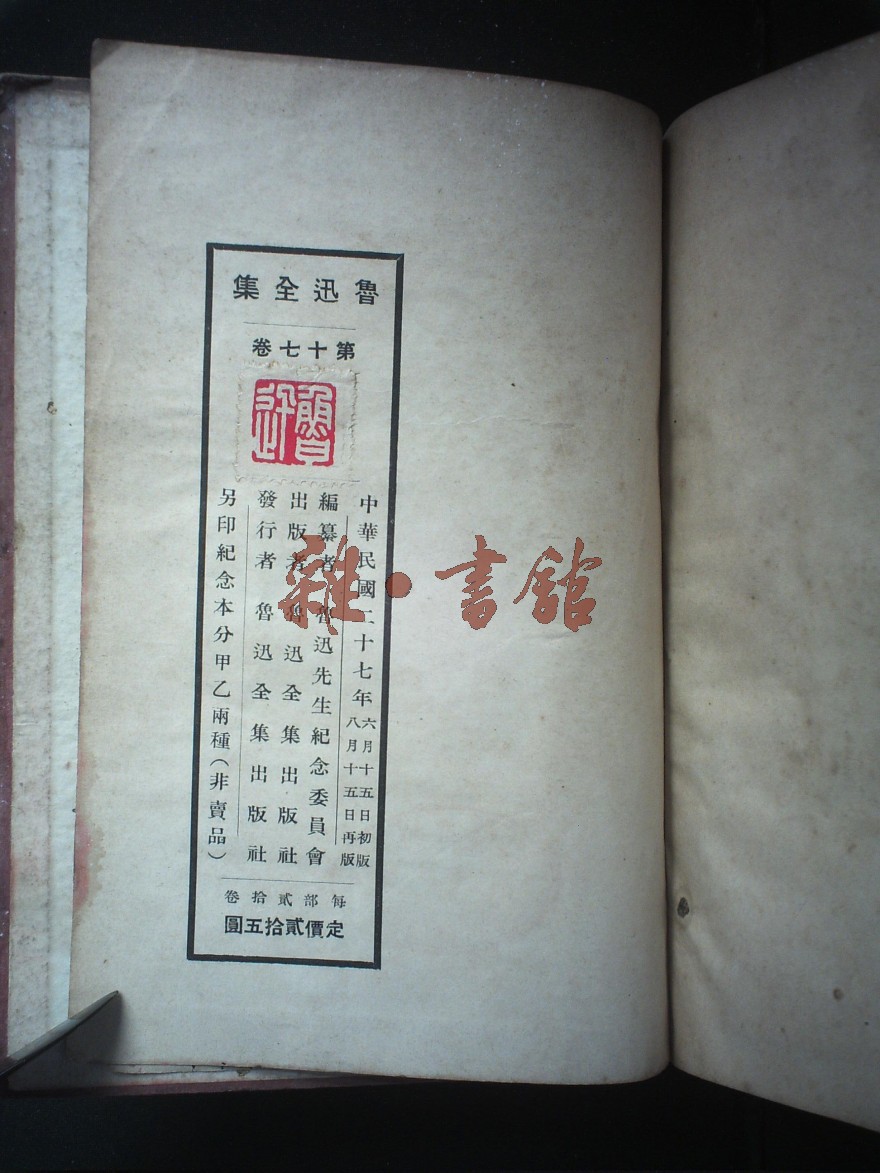 魯迅全集
第十七卷
魯迅
中華民國二十七年
六月十五日初版
八月十五日再版
編纂者魯迅先生紀念委員會
出版者魯迅全集出版社
發行者魯迅全集出版社
另印紀念本分甲乙兩種(非賣品)
每部貳拾卷
定價貳拾五圓
雜·書館